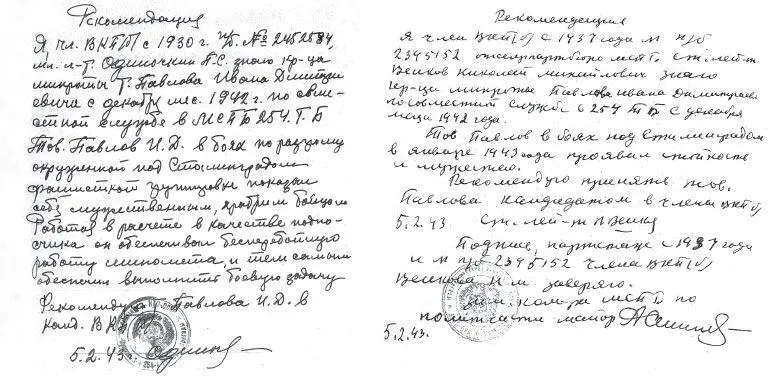 Рекомендация
Я, чл. ВКП(б) с 1930 г. п/б. № 2452584,
мл. л-т. Одиночкин П.С. знаю кр-ца
минрты т. Павлова Ивана Дмитри
евича с декабря мес. 1942 г. по совме-
стной службе в МСПБ 254. Т. Б
Тов. Павлов И. Д. в боях по разгрому
окруженной под Сталинградом
фашистской групировки показал
себя мужественным, храбрым бойцом
Работая в расчете в качестве подно-
счика он обеспечивал бесперебойную
работу миномета, и тем самым
обеспечил выполнит боевую задачу
Рекоменду Павлова И. Д. в
канд. ВКП(б)
5. 2. 43 г.
Рекомендация
Я член ВКП(б) с 1937 года м п/б
2345152 МСПБ ст. лей-т
Венков Николай Михйлович знаю
кр-ца Павлова Ивана Дмитриевича
по совместной службе в 254 ТБ с декабря
месца 1942 года.
Тов Павлов в боях под Сталинградом
в январе 1943 года проявил стойкость
и мужество.
Рекомендую принять тов.
Павлова кандидатом в члена ВКП(б)
5. 2. 43. Ст. лей-т
Подпис, с 1937 года
и м п/б 2345152 члена ВКП(б)
Венкова Н м заверяю.
Зам ком-ра МСПБ по
политчасти майор
5. 2. 43.